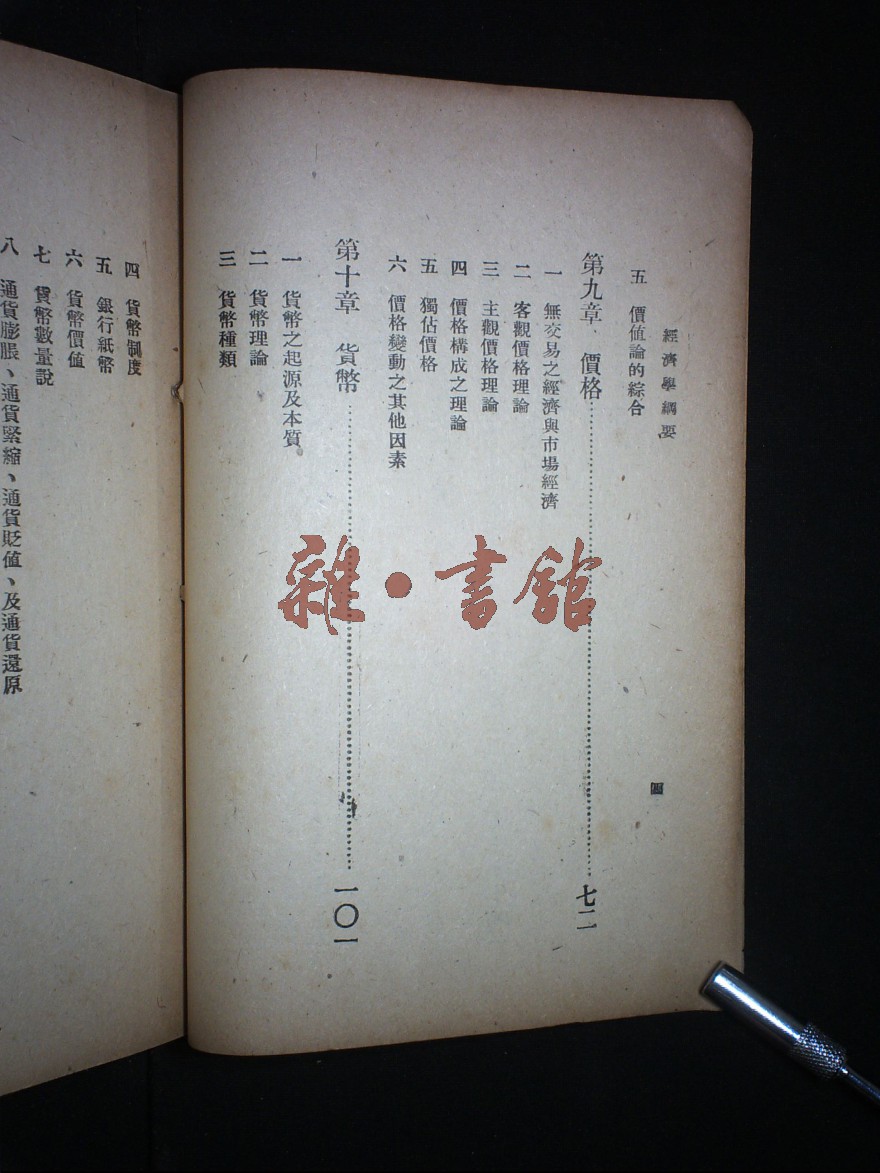 經濟學綱要
四
五　價値論的綜合
第九章　價格……七二
一　無交易之經濟與市場經濟
二　客觀價格理論
三　主觀價格理論
四　價格構成之理論
五　獨佔價格
六　價格變動之其他因素
第十章　貨幣……一〇一
一　貨幣之起源及本質
二　貨幣理論
三　貨幣種類
四　貨幣制度
五　銀行紙幣
六　貨幣價値
七　貨幣數量說
八　通貨膨脹、通貨緊縮、通貨貶値、及通貨還原
雜・書館